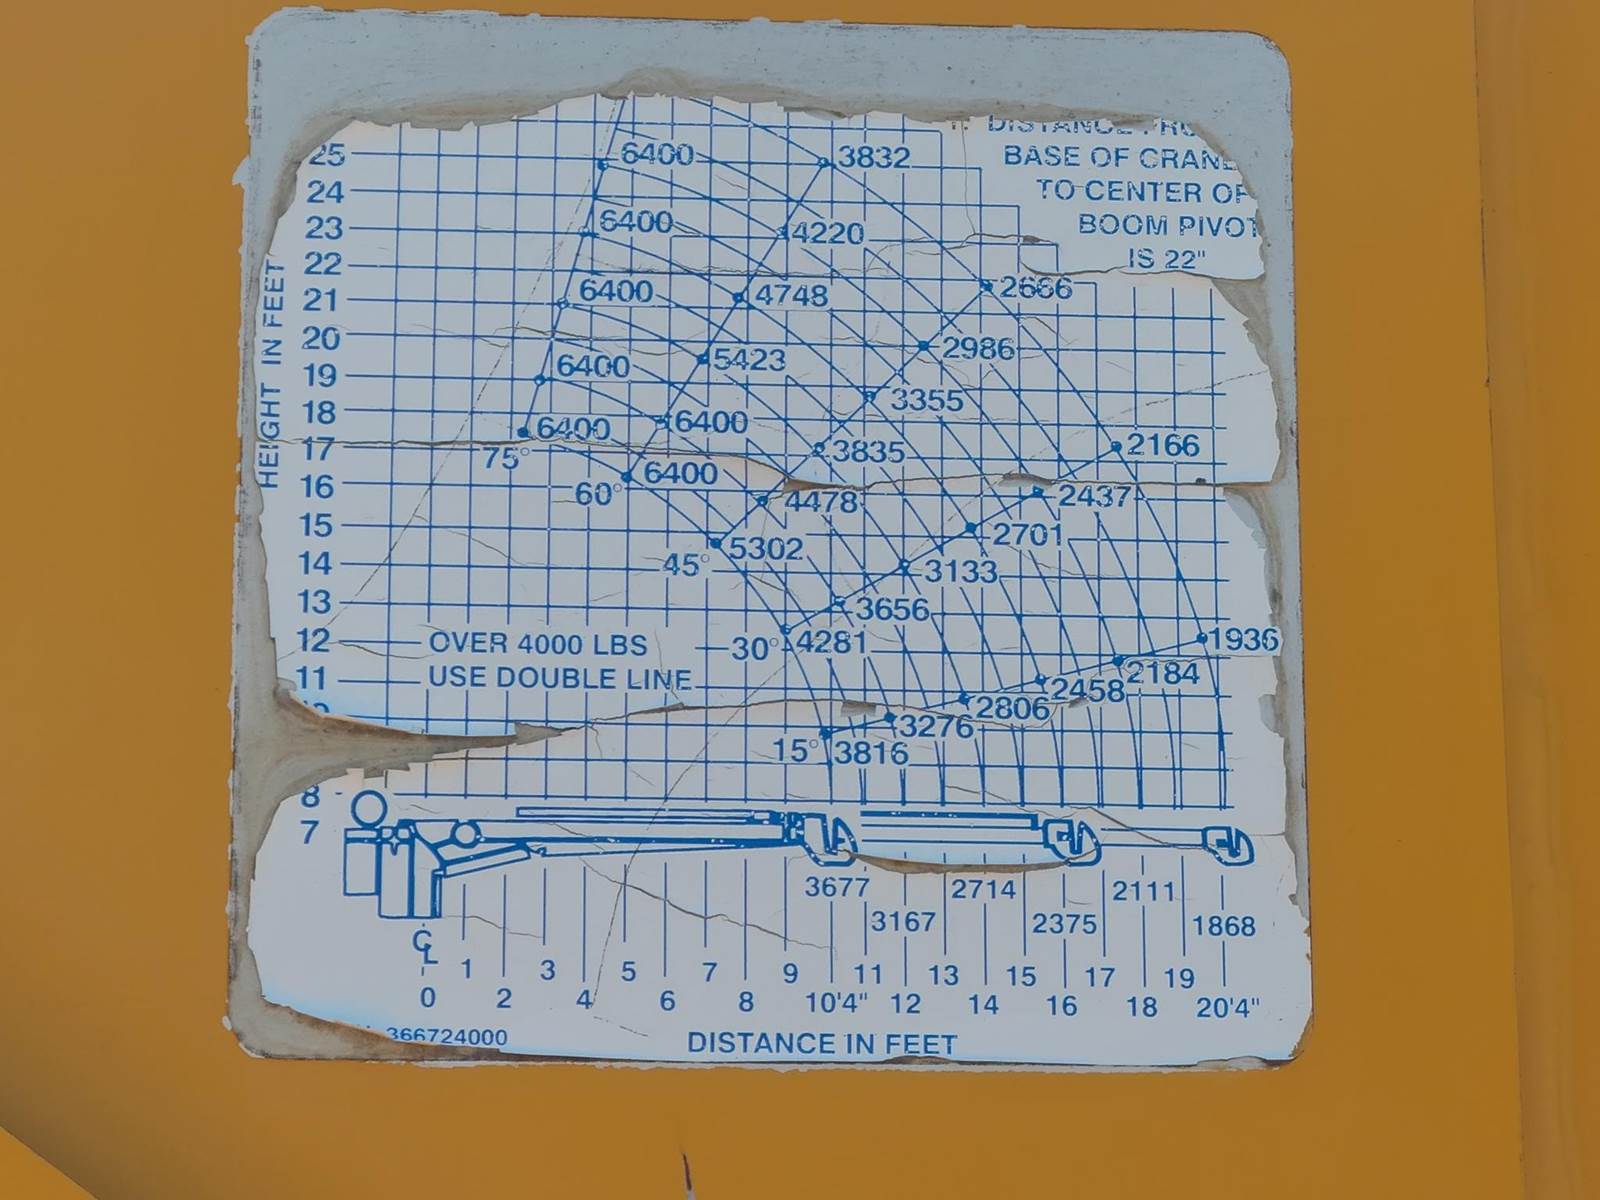 DISTANCE
25 6400 3832 BASE OF CRANE
24 TO CENTER OF
23 6400 4220 BOOM PIVOT
22 IS 22"
21 6400 4748 2666
20 5423 2986
19 6400
18 6400 3355
17 6400 3835 2166
75°
16 6400 4478 2437
60°
15 5302 2701
14 45° 3133
13 3656
12 OVER 4000 LBS 30° 4281 1936
11 USE DOUBLE LINE 2458 2184
2806
3276
15° 3816
8
7
HEIGHT IN FEET
3677 2714 2111
3167 2375 1868
CL
1 3 5 7 9 11 13 15 17 19
0 2 4 6 8 10'4" 12 14 16 18 20'4"
366724000 DISTANCE IN FEET